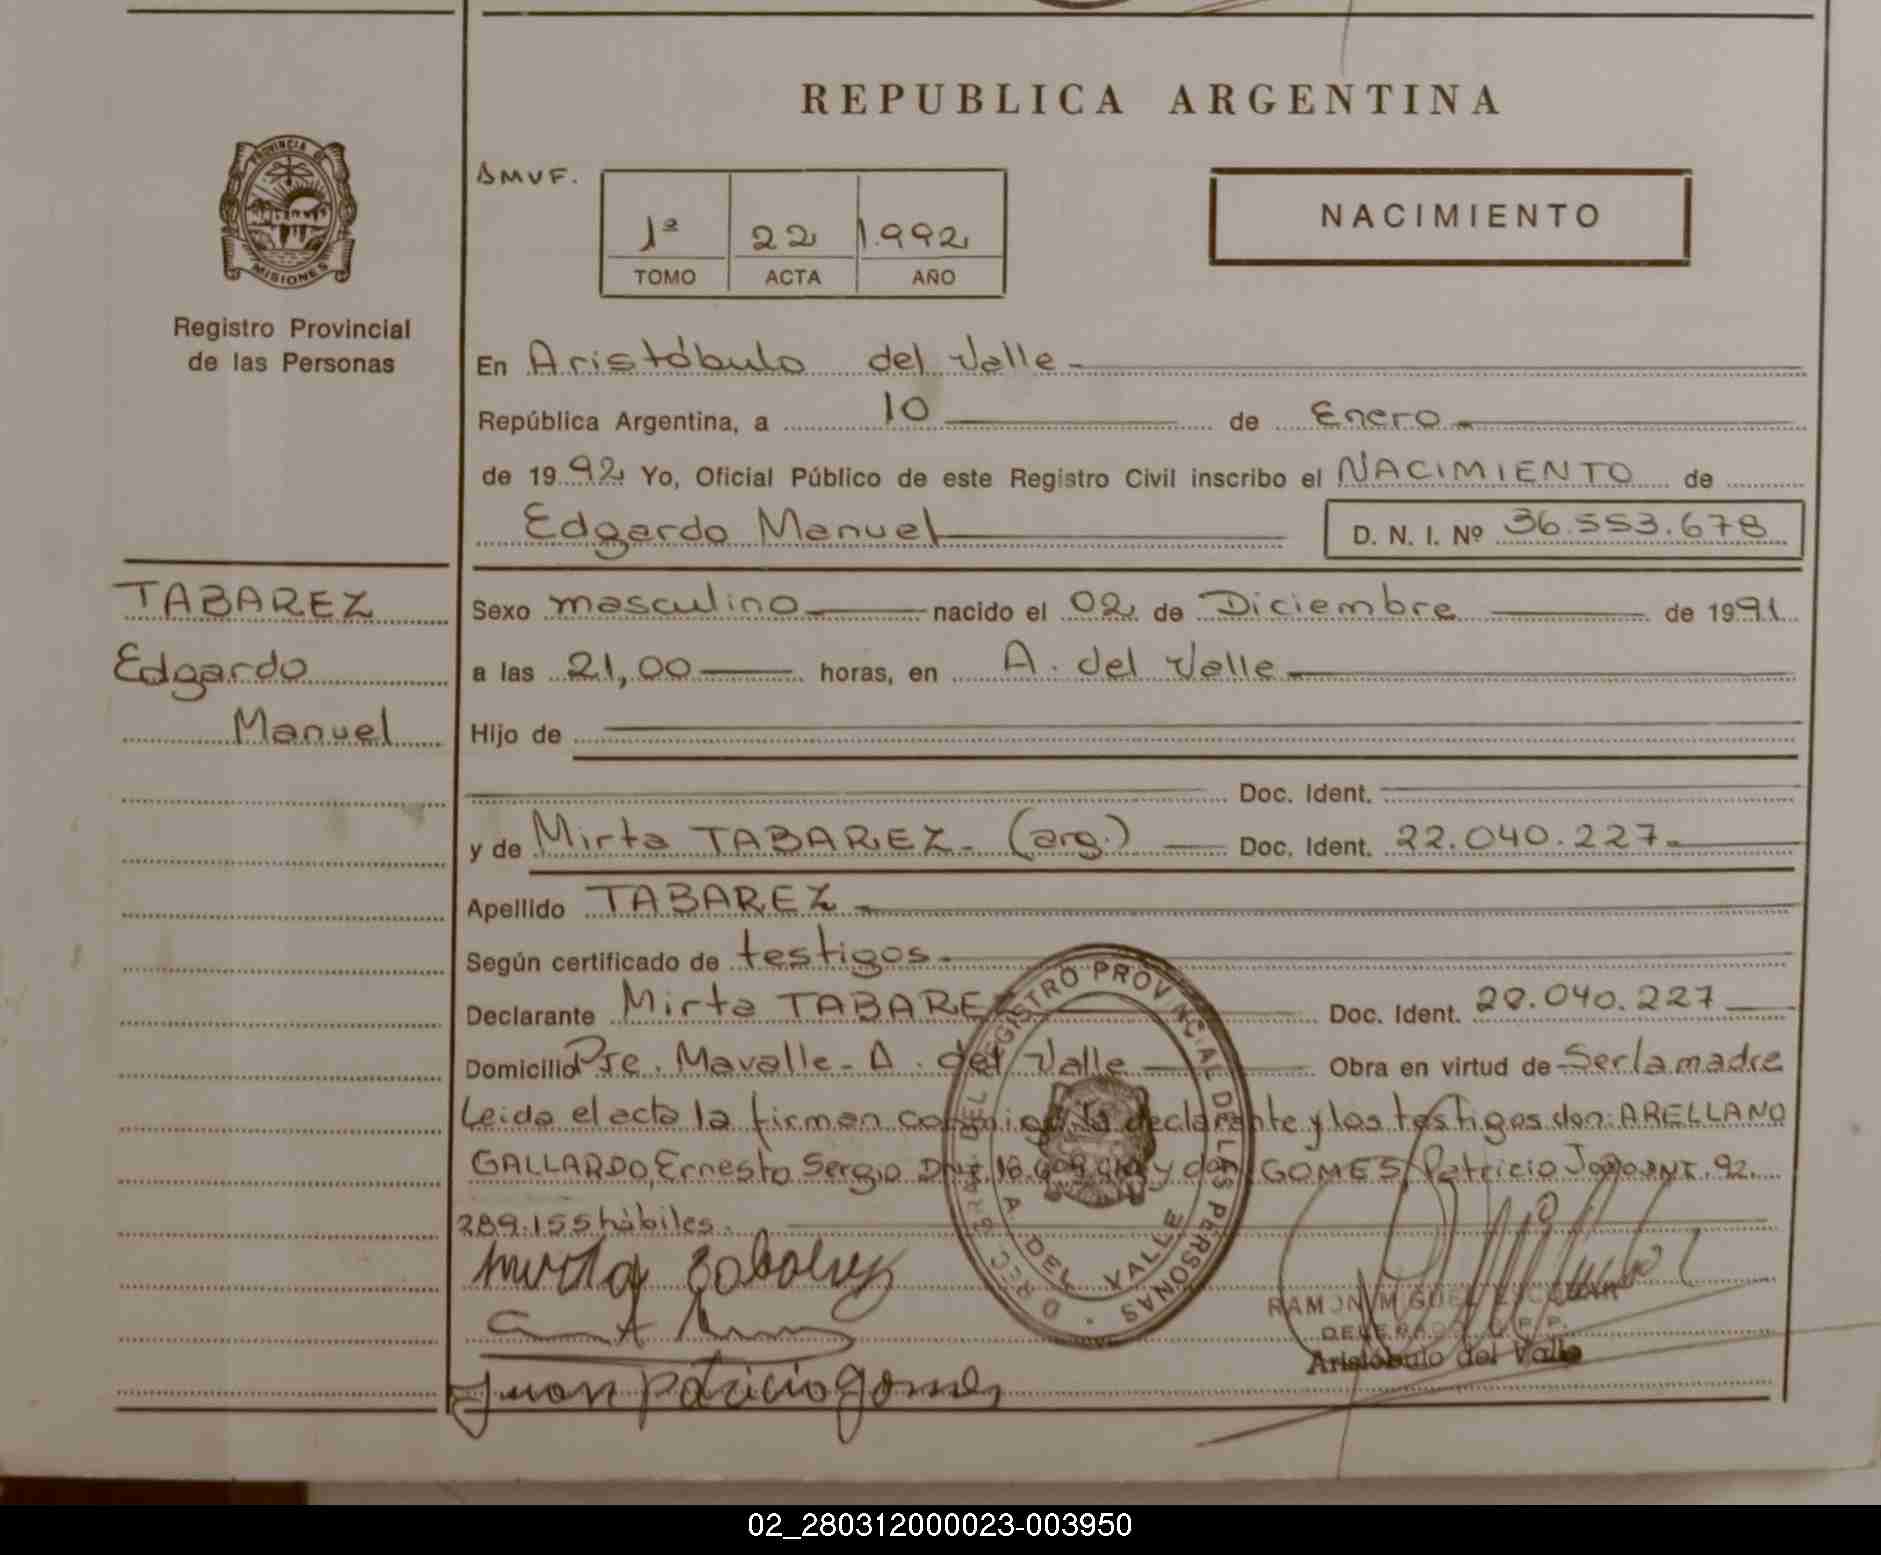 REPUBLICA ARGENTINA
PROVINCIA DE MISIONES
Registro Provincial
de las Personas
DMVF.
1ª 22 1.992
TOMO ACTA AÑO
NACIMIENTO
En Aristóbulo del Valle
República Argentina, a 10 de Enero
de 1992 Yo, Oficial Público de este Registro Civil inscribo el NACIMIENTO de
Edgardo Manuel D. N. I. Nº 36.553.678
TABAREZ
Edgardo
Manuel
Sexo masculino nacido el 02 de Diciembre de 1991
a las 21,00 horas, en A. del Valle
Hijo de
Doc. Ident.
y de Mirta TABAREZ - (arg.) Doc. Ident. 22.040.227
Apellido TABAREZ
Según certificado de testigos
Declarante Mirta TABAREZ Doc. Ident. 22.040.227
Domicilio Pje. Mavalle - A. del Valle Obra en virtud de Ser la madre
Leida el acta la firman conmigo la declarante y los testigos don: ARELLANO
GALLARDO, Ernesto Sergio DNI. 18. y don GOMES, Patricio DNI. 92.
289.155 hábiles.
Mirta Tabarez
Juan Patricio Gomes
REGISTRO PROVINCIAL DE LAS PERSONAS
A. DEL VALLE
RAMON MIGUEL
Aristóbulo del Valle
02_280312000023-003950